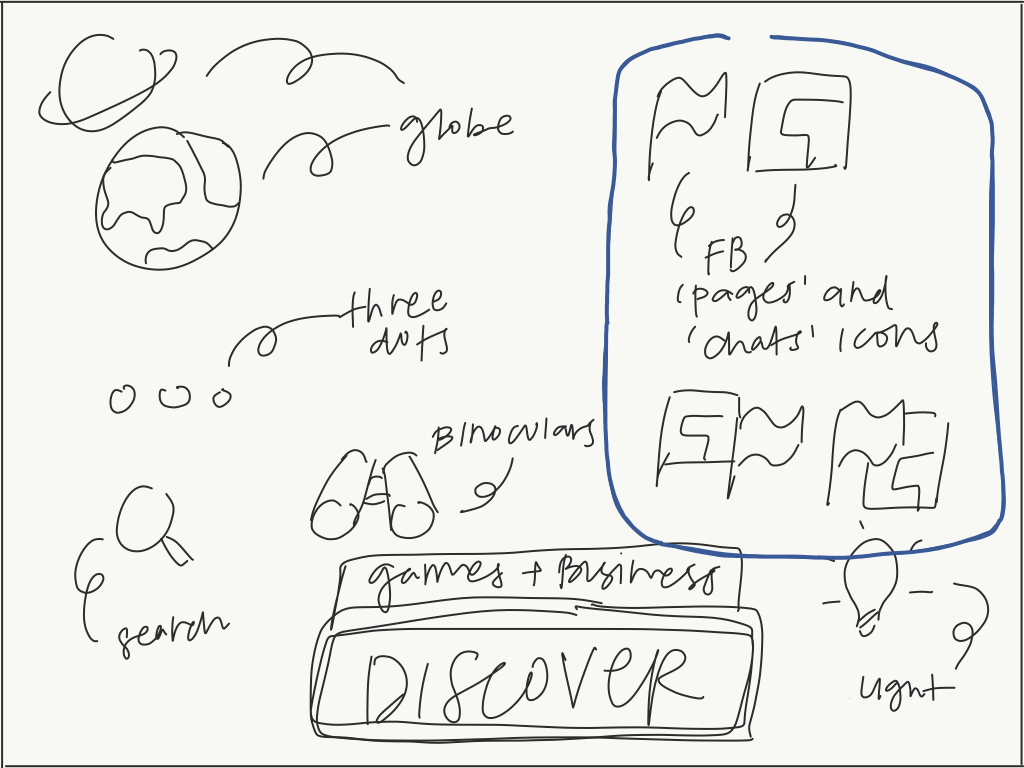 globe
FB
'pages' and
'chats' icons
three
dots
Binoculars
search
games + Business
DISCOVER
light